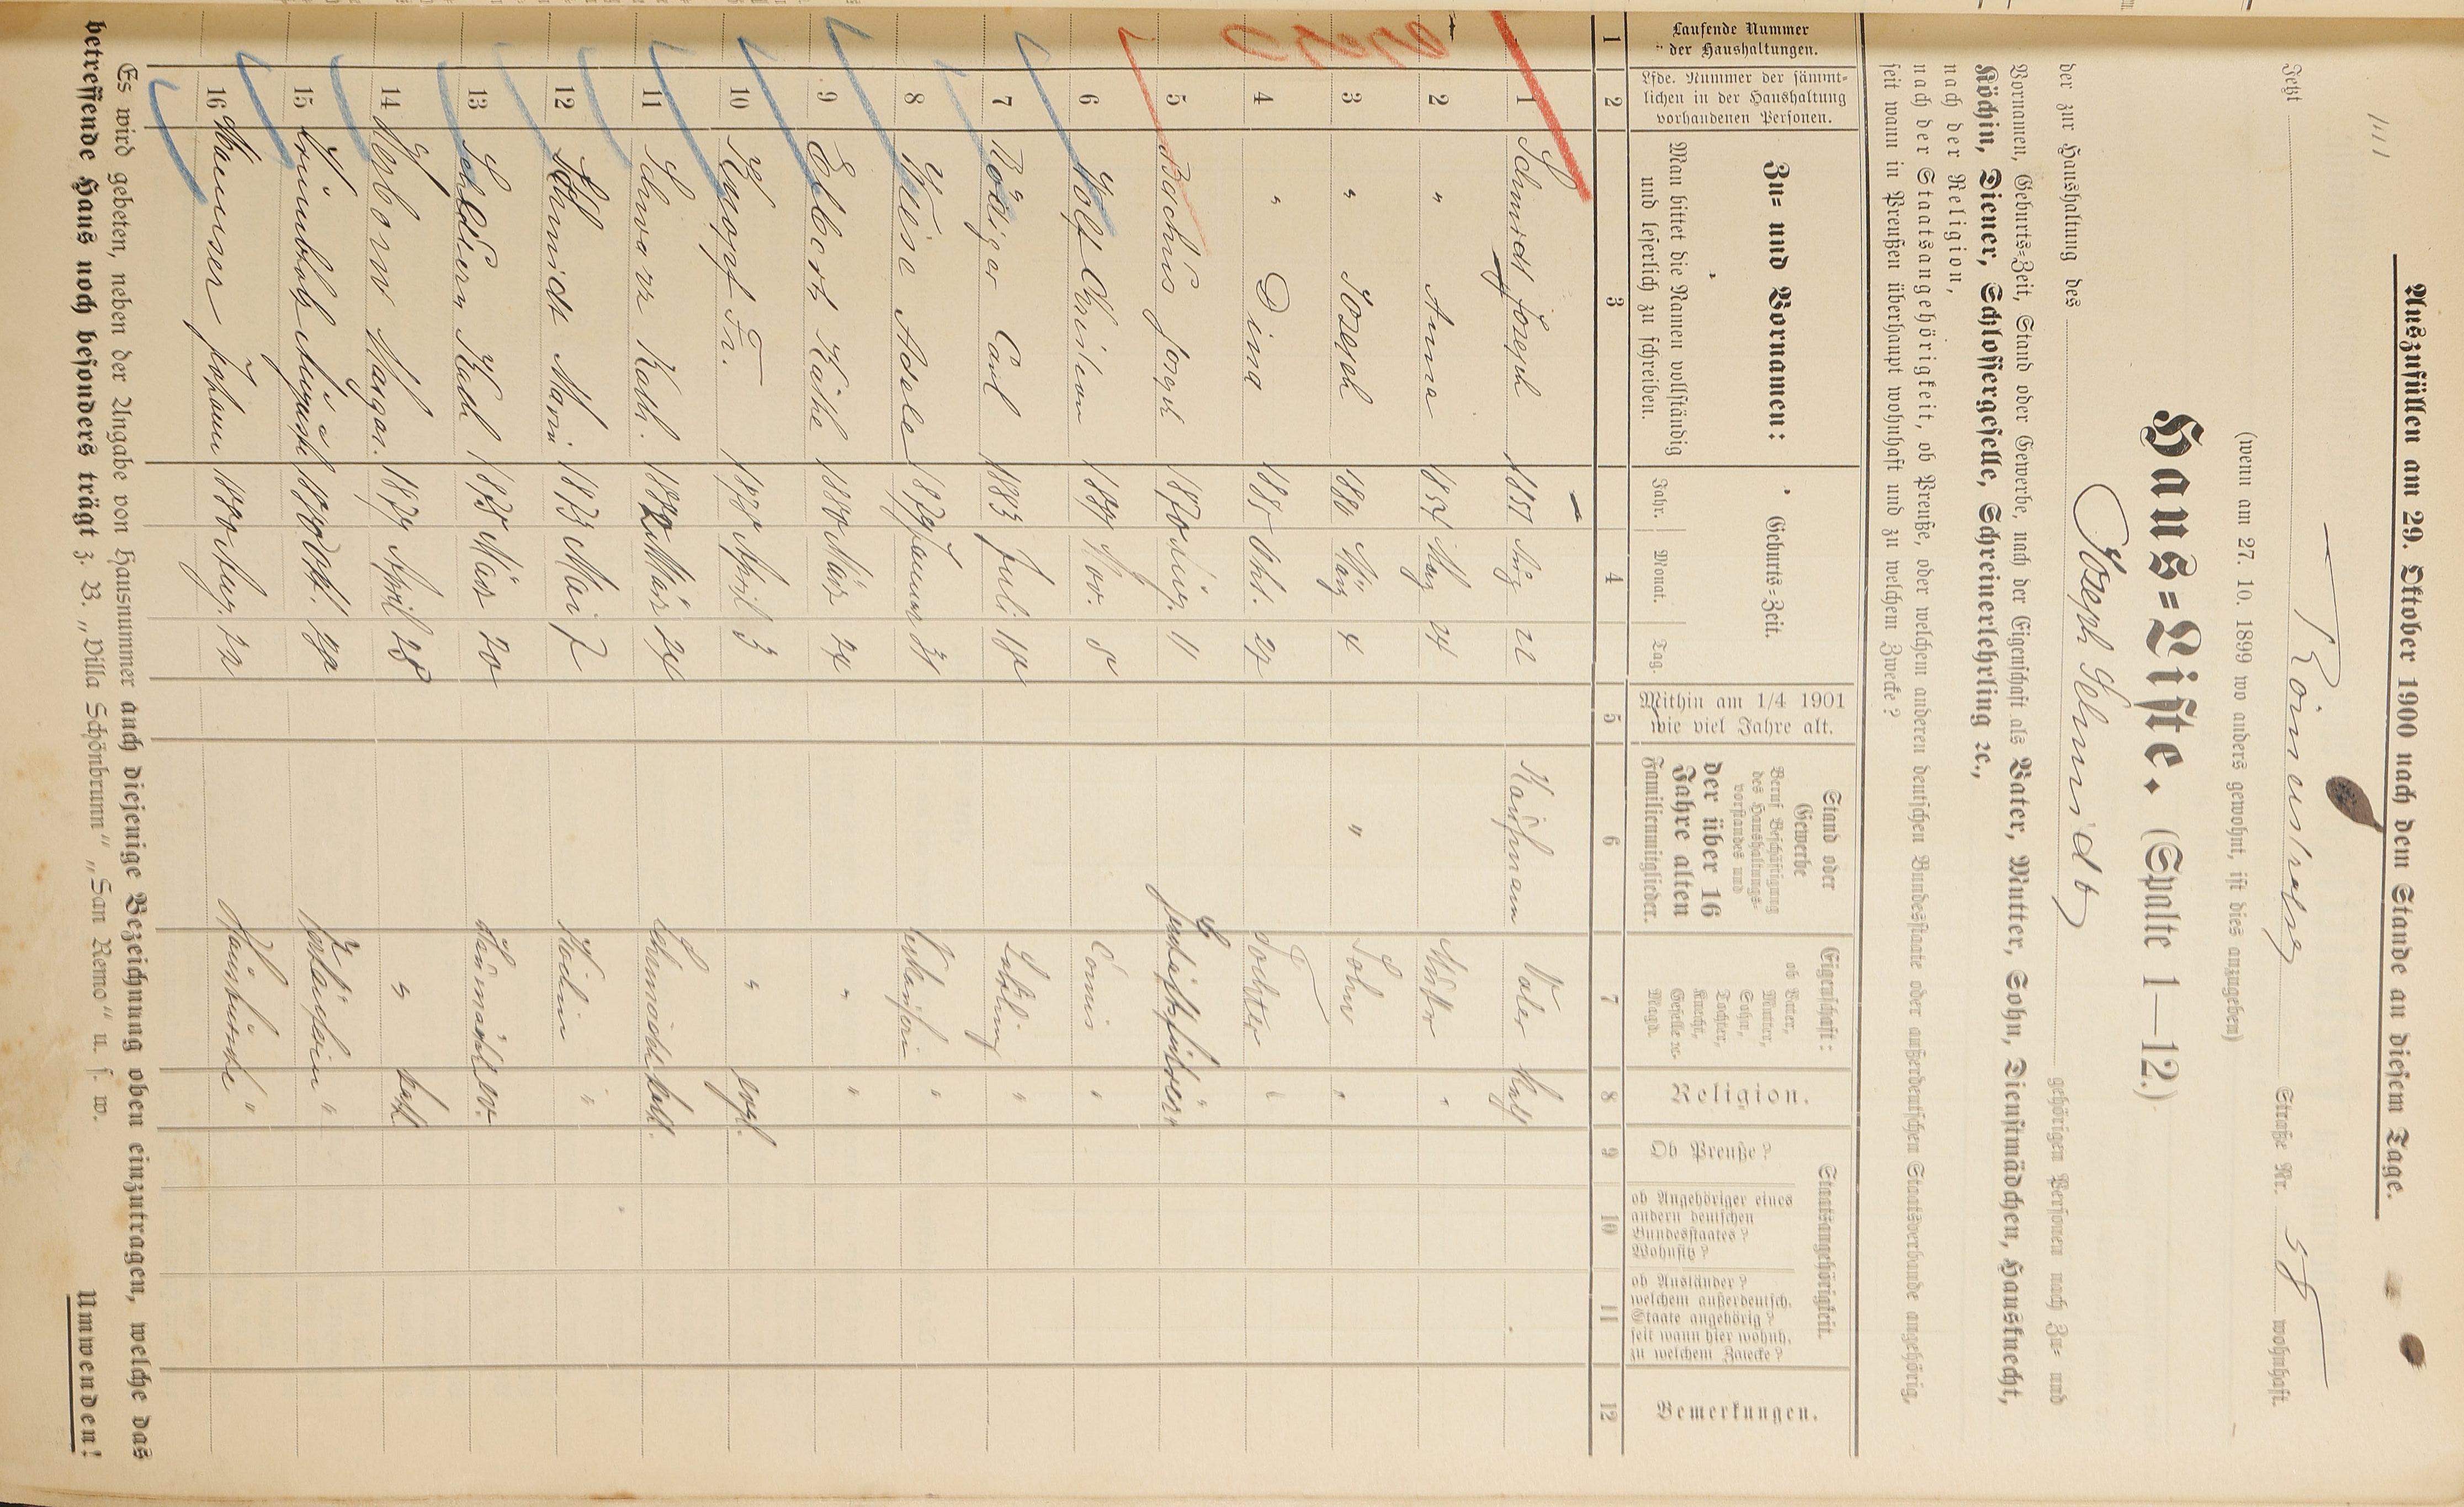 Auszufüllen am 29. Oktober 1900 nach dem Stande an diesem Tage.
Jetzt Römerstrasse Straße Nr. wohnhaft.
(wenn am 27. 10. 1899 wo anders gewohnt, ist dies anzugeben)
Haus=Liste. (Spalte 1—12.)
der zur Haushaltung des Joseph Schmidt gehörigen Personen nach Zu= und
Vornamen, Geburts=Zeit, Stand oder Gewerbe, nach der Eigenschaft als Vater, Mutter, Sohn, Dienstmädchen, Hausknecht,
Köchin, Diener, Schlossergeselle, Schreinerlehrling ꝛc.,
nach der Religion,
nach der Staatsangehörigkeit, ob Preuße, oder welchem anderen deutschen Bundesstaate oder außerdeutschen Staatsverbande angehörig,
seit wann in Preußen überhaupt wohnhaft und zu welchem Zwecke?
Laufende Nummer der Haushaltungen.
Lfde. Nummer der sämmt-
lichen in der Haushaltung
vorhandenen Personen.
Zu= und Vornamen:
Man bittet die Namen vollständig
und leserlich zu schreiben.
Geburts=Zeit.
Jahr. Monat. Tag.
Mithin am 1/4 1901
wie viel Jahre alt.
Stand oder
Gewerbe
Beruf Beschäftigung
des Haushaltungs-
vorstandes und
der über 16
Jahre alten
Familienmitglieder.
Eigenschaft:
ob Vater,
Mutter,
Sohn,
Tochter,
Knecht,
Geselle ꝛc.
Magd.
Religion.
Staatsangehörigkeit.
Ob Preuße?
ob Angehöriger eines
andern deutschen
Bundesstaates?
Wohnsitz?
ob Ausländer?
welchem außerdeutsch.
Staate angehörig?
seit wann hier wohnh.
zu welchem Zwecke?
Bemerkungen.
1 2 3 4 5 6 7 8 9 10 11 12
1 Schmidt Joseph 1851 Aug 22 Kaufmann Vater Kath
2 " Anna May 24 Mutter "
3 " Joseph März 4 " Sohn "
4 " Dina 1885 Okt. 27 Tochter "
5 Bachus Joseph 1870 Aug. 11 "
6 Wolf Christian Nov. 8 Comis "
7 Rödiger Carl 1883 Juli 18 Lehrling "
8 Weise Adele 1879 Januar 31 Verkäuferin "
9 Elbert Käthe 1880 März 24 " "
10 Knopf Fr. April 3 " evgl.
11 Schwarz Kath. 1882 März 24 Lehrmädch. kath.
12 Schmidt Marie 1873 Mai 7 Köchin "
13 Kath 1875 März 20 Hausmädch. ev.
14 Margar. 1879 April 28 " kath
15 August 1880 Okt. 29 "
16 Johann 1880 Aug. 22 Hausbursche "
Es wird gebeten, neben der Angabe von Hausnummer auch diejenige Bezeichnung oben einzutragen, welche das
betreffende Haus noch besonders trägt z. B. „Villa Schönbrunn" „San Remo" u. s. w.
Umwenden!